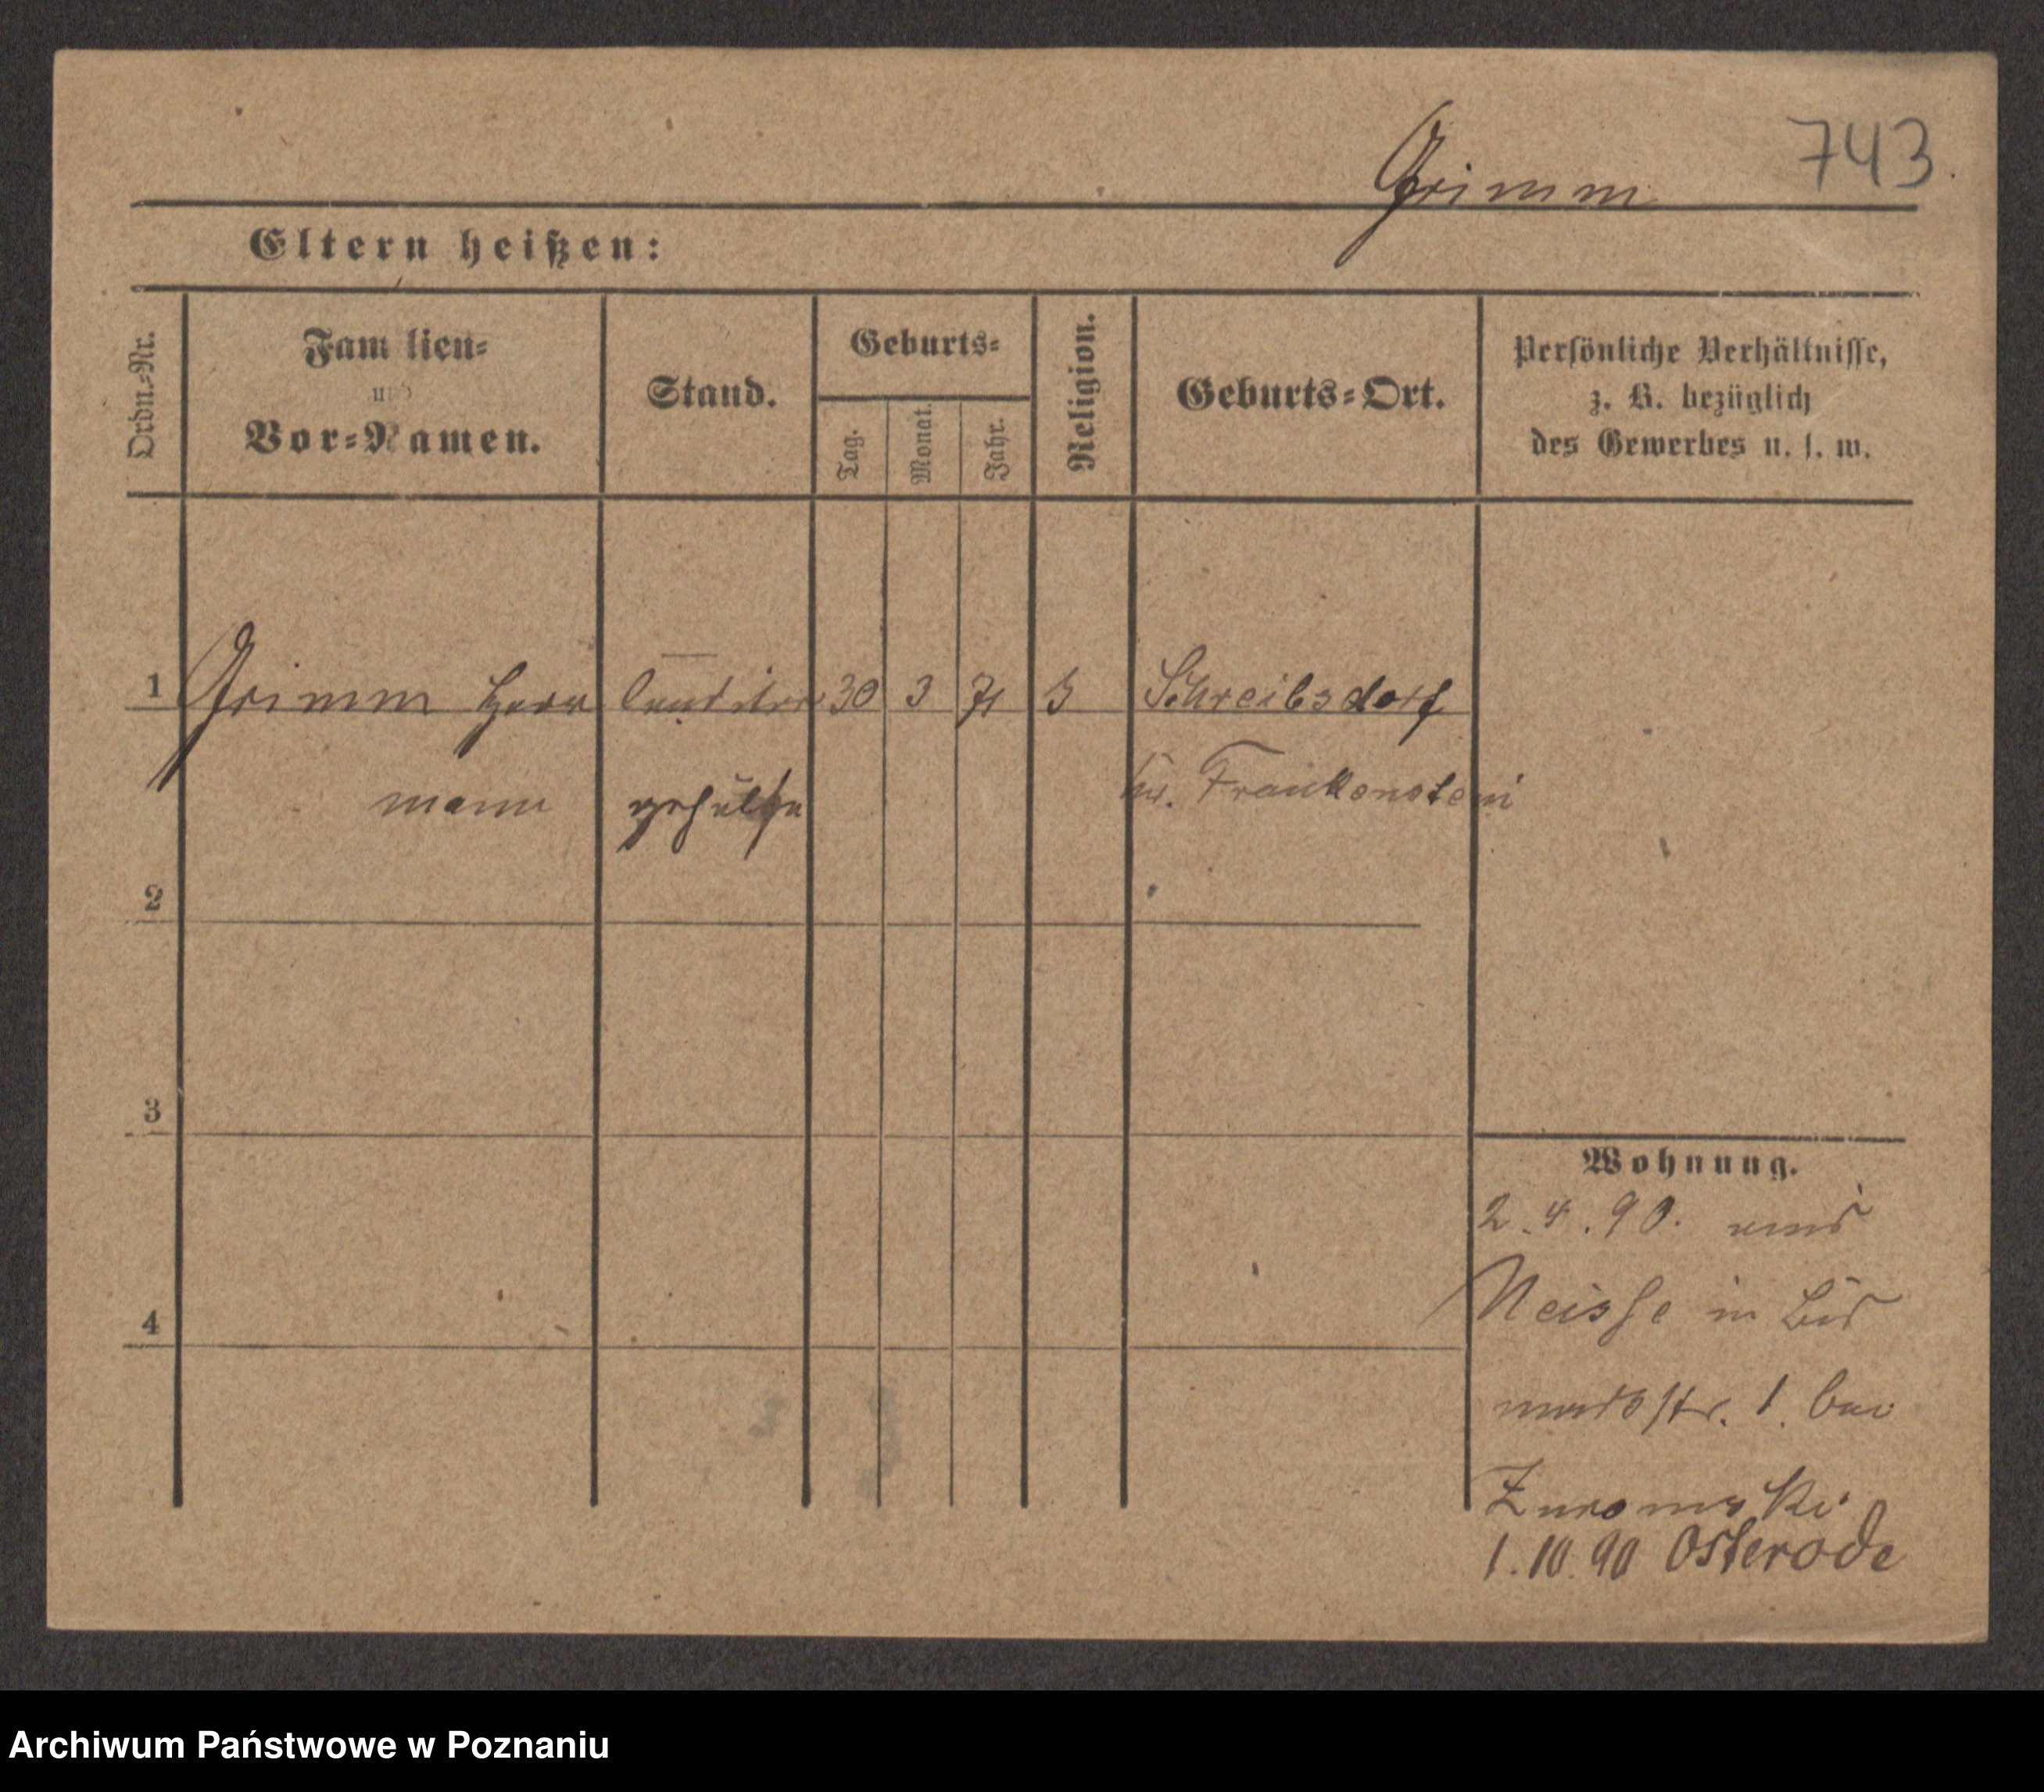 743
Grimm
Eltern heißen:
Ordn.-Nr.
Familien-
und
Vor-Namen.
Stand.
Geburts-
Tag.
Monat.
Jahr.
Religion.
Geburts-Ort.
Persönliche Verhältnisse,
z. B. bezüglich
des Gewerbes u. s. w.
1 Grimm Herr Conditor 30 3 71 Schreibsdorf
mann gehülfe Kr. Frankenstein
2
3
4
Wohnung.
2.4.90. aus
Neisse in Bis
markstr. 1. bei
Zuromski
1.10.90 Osterode
Archiwum Państwowe w Poznaniu